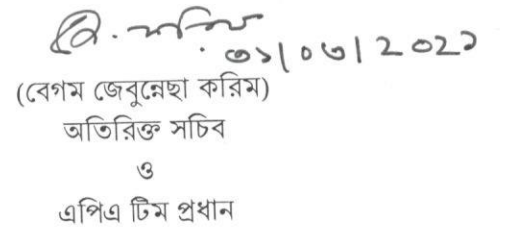 ৩১/০৩/2021
(বেগম জেবুন্নেছা করিম)
অতিরিক্ত সচিব
ও
এপিএ টিম প্রধান